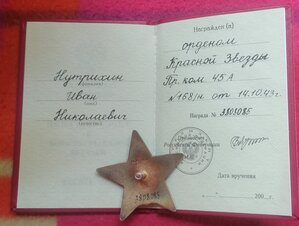 Нутрихин
(фамилия)
Иван
(имя)
Николаевич
(отчество)
Награжден (а)
орденом
Красной Звезды
Пр. ком. 45 А
№ 168/н от 14.10.43 г.
Награда № 3808085
Президент
Российской Федерации
Дата вручения
200 г.
3808085